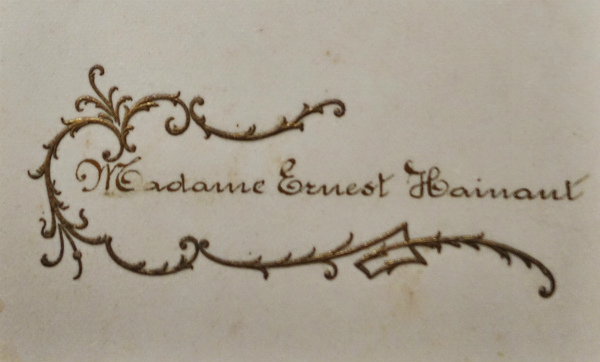 Madame Ernest Hainaut